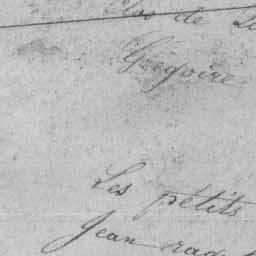 Clos de
Grégoire
Les petits
Jean